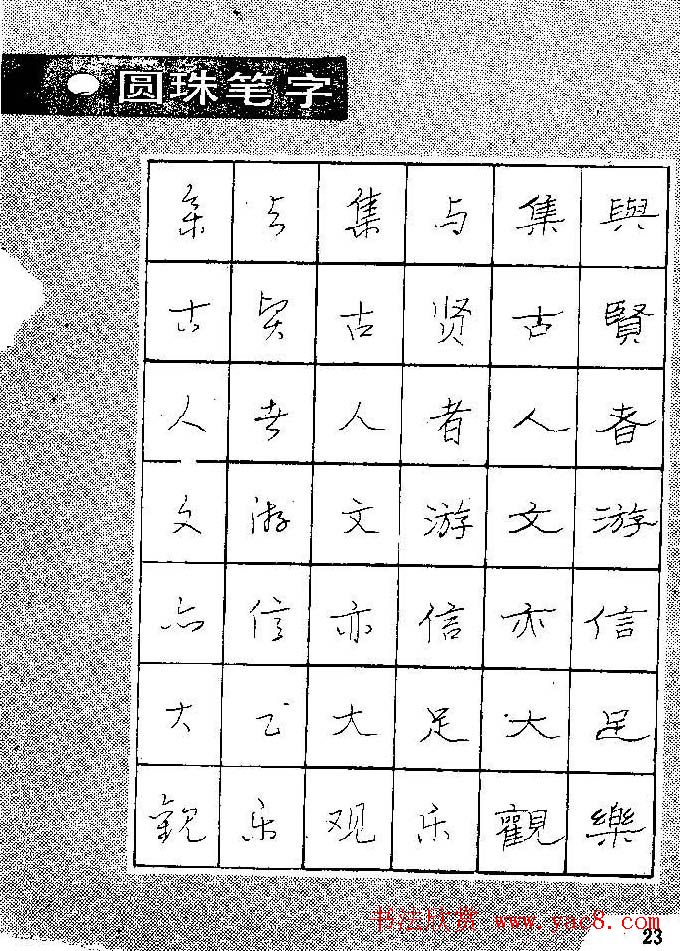 圆珠笔字
與賢者游信足樂
集古人文亦大觀
与贤者游信足乐
集古人文亦大观
与贤者游信足乐
集古人文亦大观
书法欣赏 www.yac8.com
23